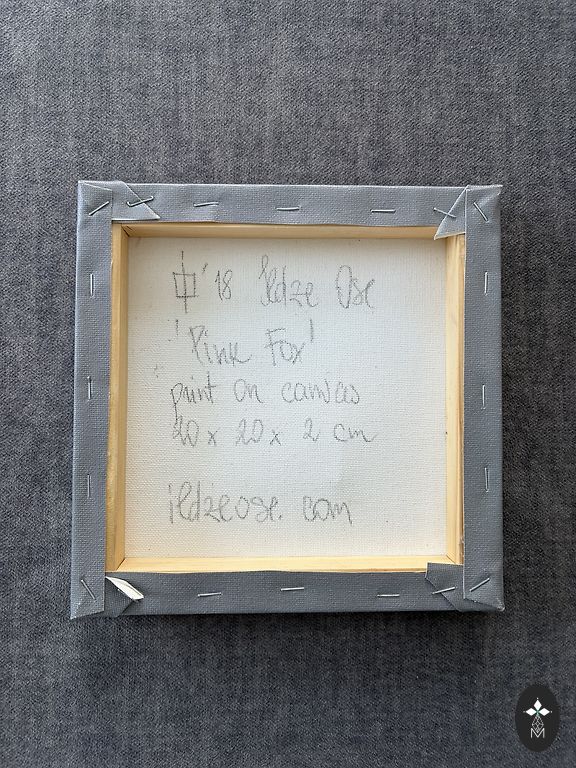 '18 Ildze Ose
'Pink Fox'
print on canvas
20 x 20 x 2 cm
ildzeose.com
M